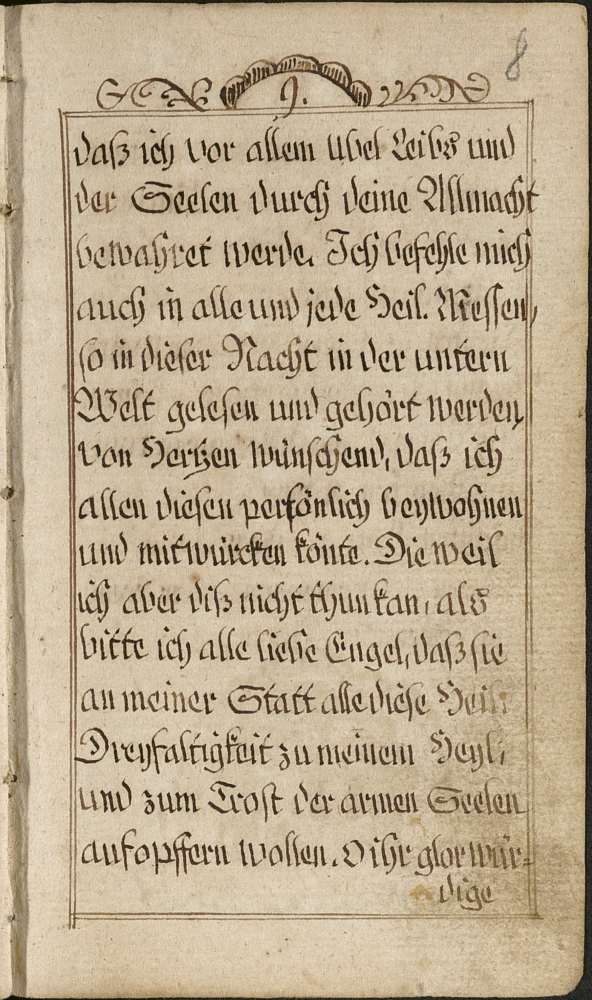 8
9.
daß ich vor allem Ubel Leibs und
der Seelen durch deine Allmacht
bewahret werde. Ich befehle mich
auch in alle und jede Heil. Messen,
so in dieser Nacht in der untern
Welt gelesen und gehört werden,
von Hertzen wünschend, daß ich
allen diesen persönlich beywohnen
und mitwürcken könte. Dieweil
ich aber diß nicht thun kan, als
bitte ich alle liebe Engel, daß sie
an meiner Statt alle diese Heil:
Dreyfaltigkeit zu meinem Heyl,
und zum Trost der armen Seelen
aufopffern wollen. O ihr glorwür-
dige